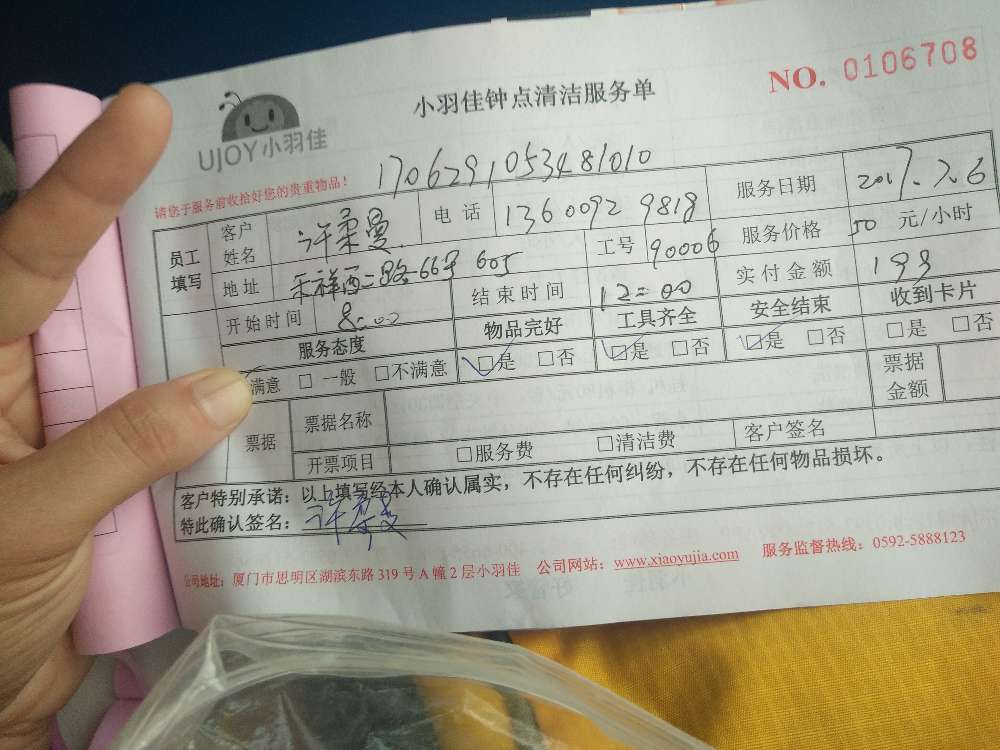 NO. 0106708
小羽佳钟点清洁服务单
UJOY小羽佳
请您于服务前收拾好您的贵重物品！
170629105348101​0
员工填写 客户姓名 许柔曼 电话 13600929818 服务日期 2017.7.6
地址 禾祥西二路66号605 工号 90006 服务价格 50 元/小时
开始时间 8:00 结束时间 12:00 实付金额 198
服务态度 物品完好 工具齐全 安全结束 收到卡片
满意 □ 一般 □不满意 □是 □否 □是 □否 □是 □否 □是 □否
票据 票据名称 票据金额
开票项目 □服务费 □清洁费 客户签名
客户特别承诺：以上填写经本人确认属实，不存在任何纠纷，不存在任何物品损坏。
特此确认签名：许柔曼
公司地址：厦门市思明区湖滨东路319号A幢2层小羽佳 公司网站：www.xiaoyujia.com 服务监督热线：0592-5888123